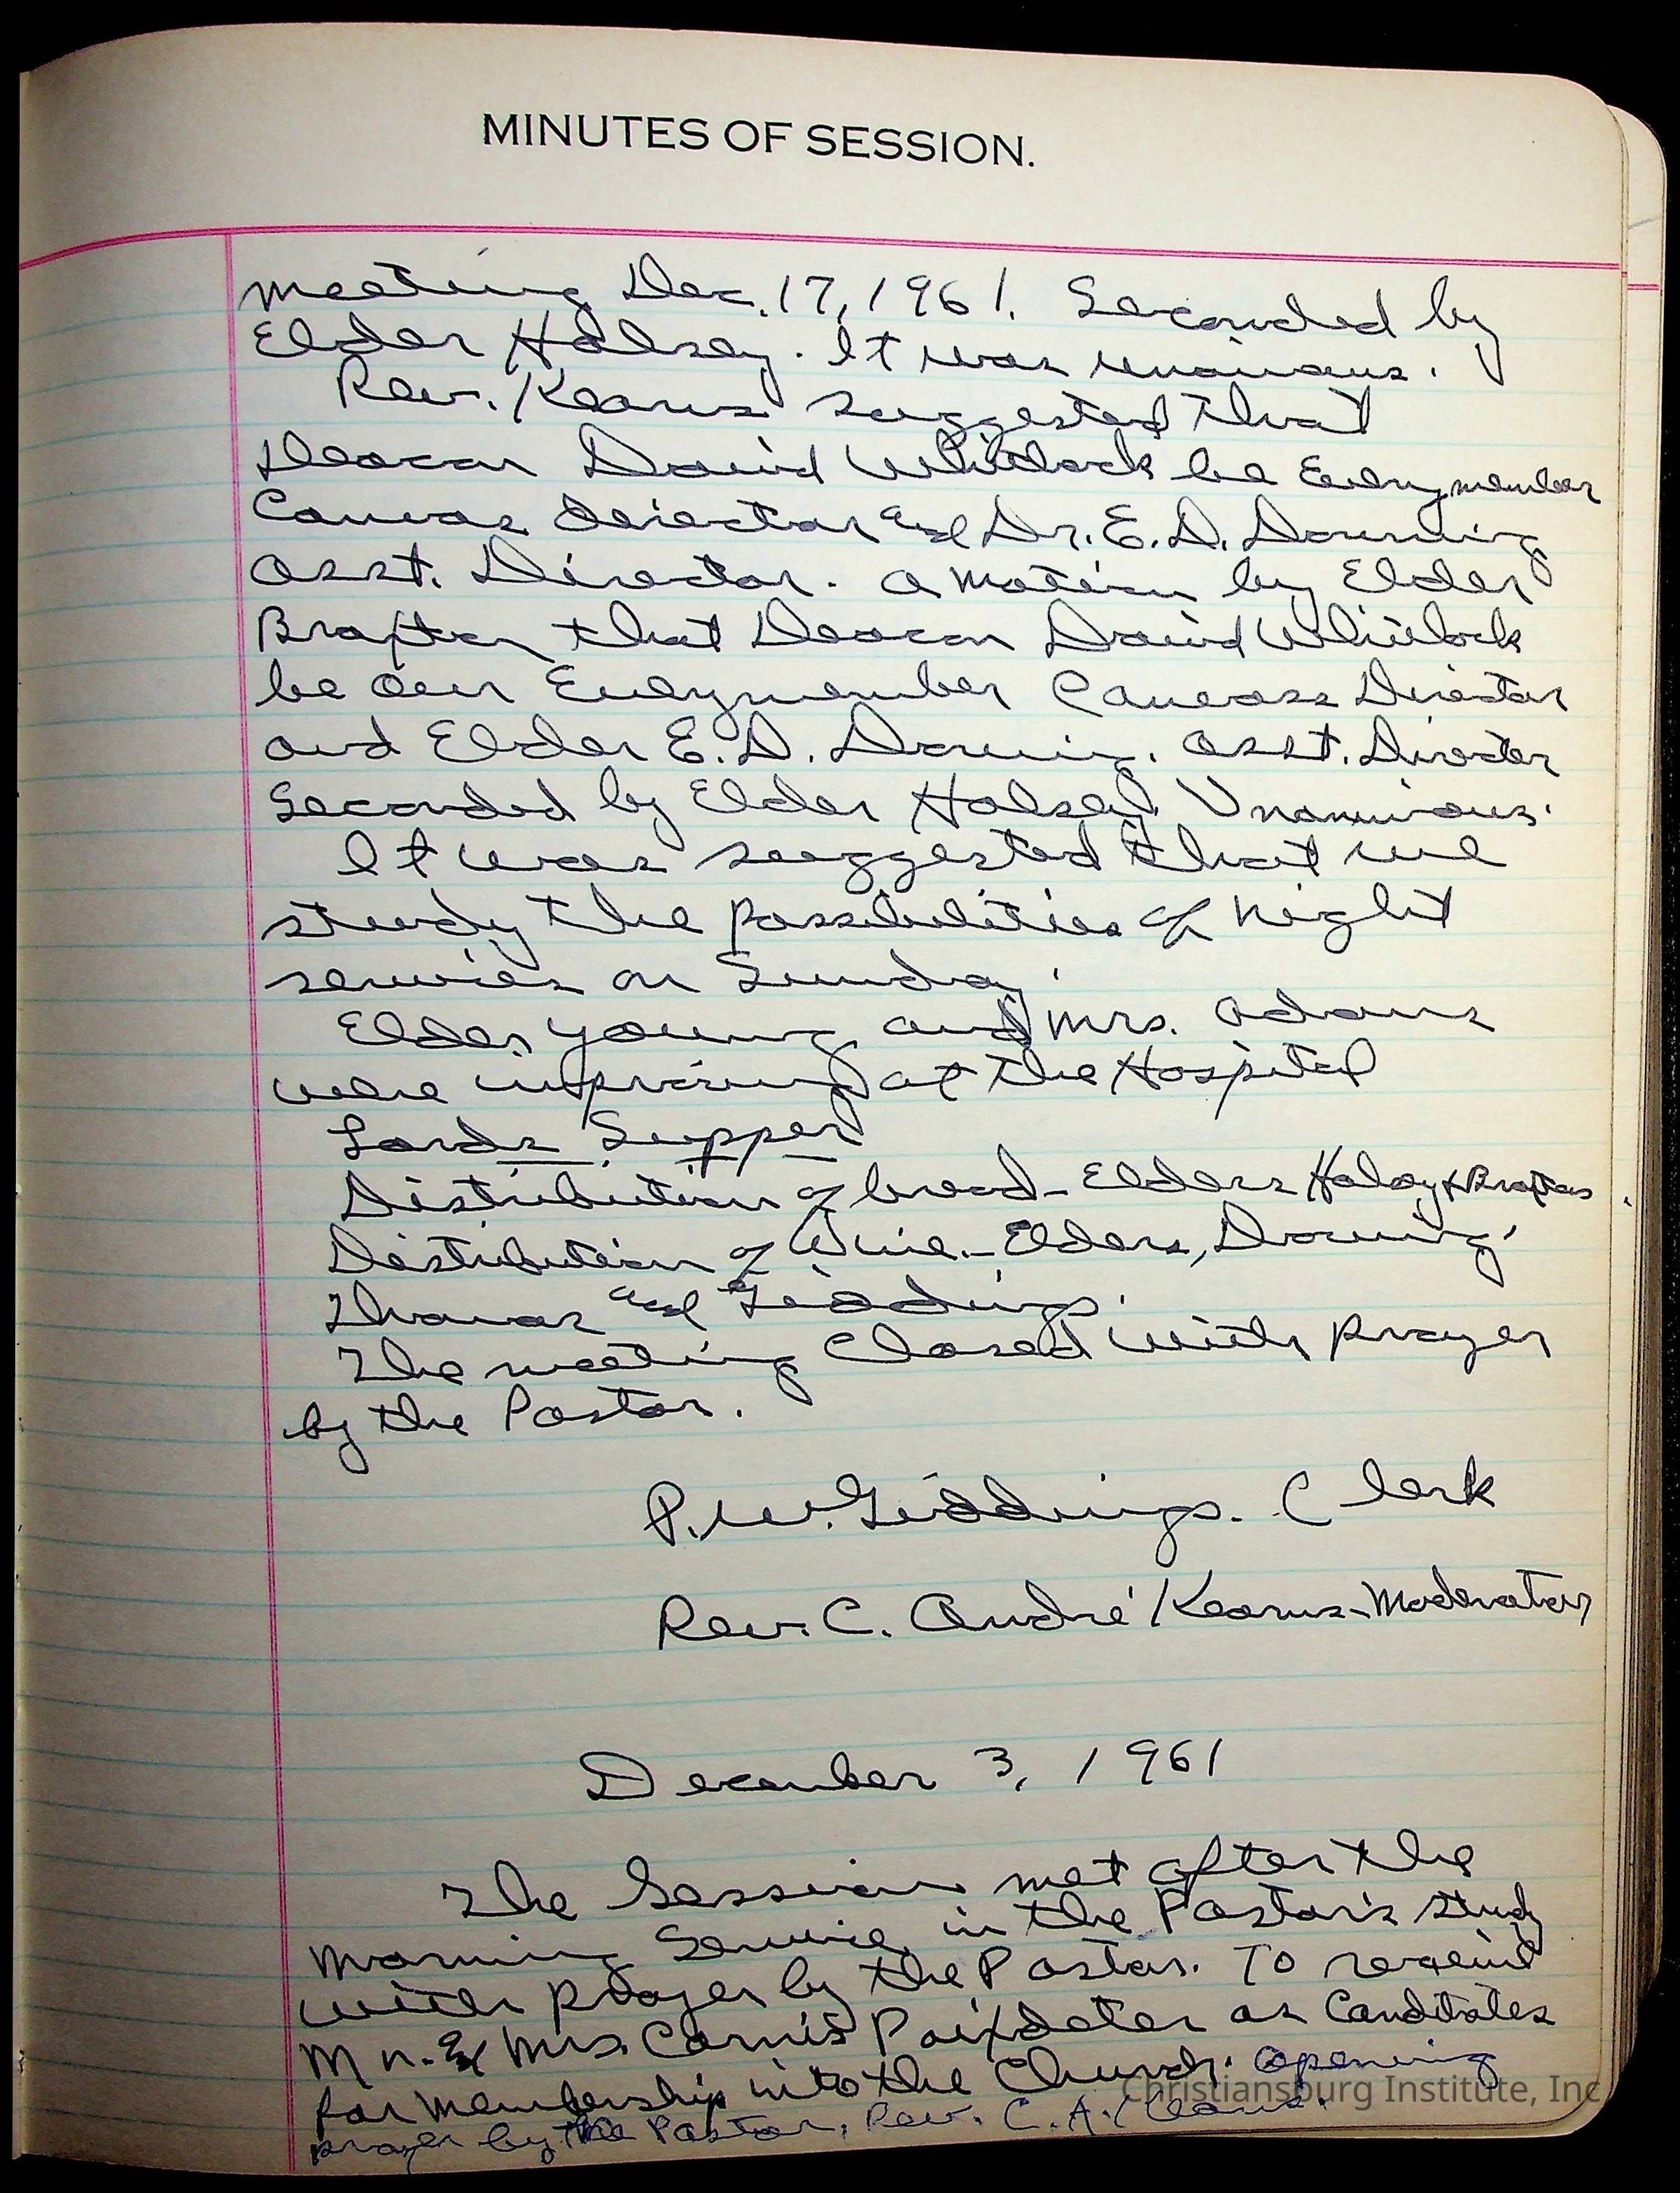 MINUTES OF SESSION.
meeting Dec. 17, 1961. Seconded by
Elder Halsey. It was unaimous.
Rev. Kearns suggested that
Deacon David Whitlock be Everymember
Canvas Director and Dr. E. D. Downing
asst. Director. a motion by Elder
that Deacon David Whitlock
be our Everymember Canvass Director
and Elder E. D. Downing. asst. Director
Seconded by Elder Halsey. Unanimous.
It was suggested that we
study the possibilities of night
services on Sunday.
Elder Young and Mrs. Adams
were improving at the Hospital
Lords Supper
Distribution of bread - Elders Halsey &
Distribution of Wine. - Elders, Downing,
Thomas and Giddings.
The meeting Closed with prayer
by the Pastor.
P. W. Giddings. Clerk
Rev. C. André Kearns - Moderator
December 3, 1961
The Session met after the
morning Service in the Pastor's study
with prayer by the Pastor. To
Mr. & Mrs. as Canditates
for membership into the Church. Opening
prayer by the Pastor, Rev. C. A. Kearns.
Christiansburg Institute, Inc